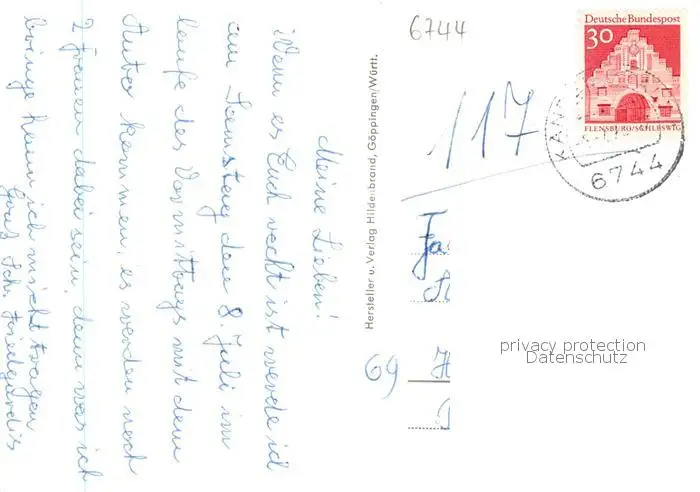 Meine Lieben!
Wenn es Euch recht ist werde ich
am Samstag den 8. Juli im
laufe des Vormittags mit dem
Auto kommen, es werden noch
2 Frauen dabei sein, denn was ich
bringe kann ich nicht tragen
Gruß Schr. Friedgardis
Hersteller u. Verlag Hildenbrand, Göppingen/Württ.
6744
Deutsche Bundespost
30
FLENSBURG/SCHLESWIG
6744
117
69
privacy protection
Datenschutz